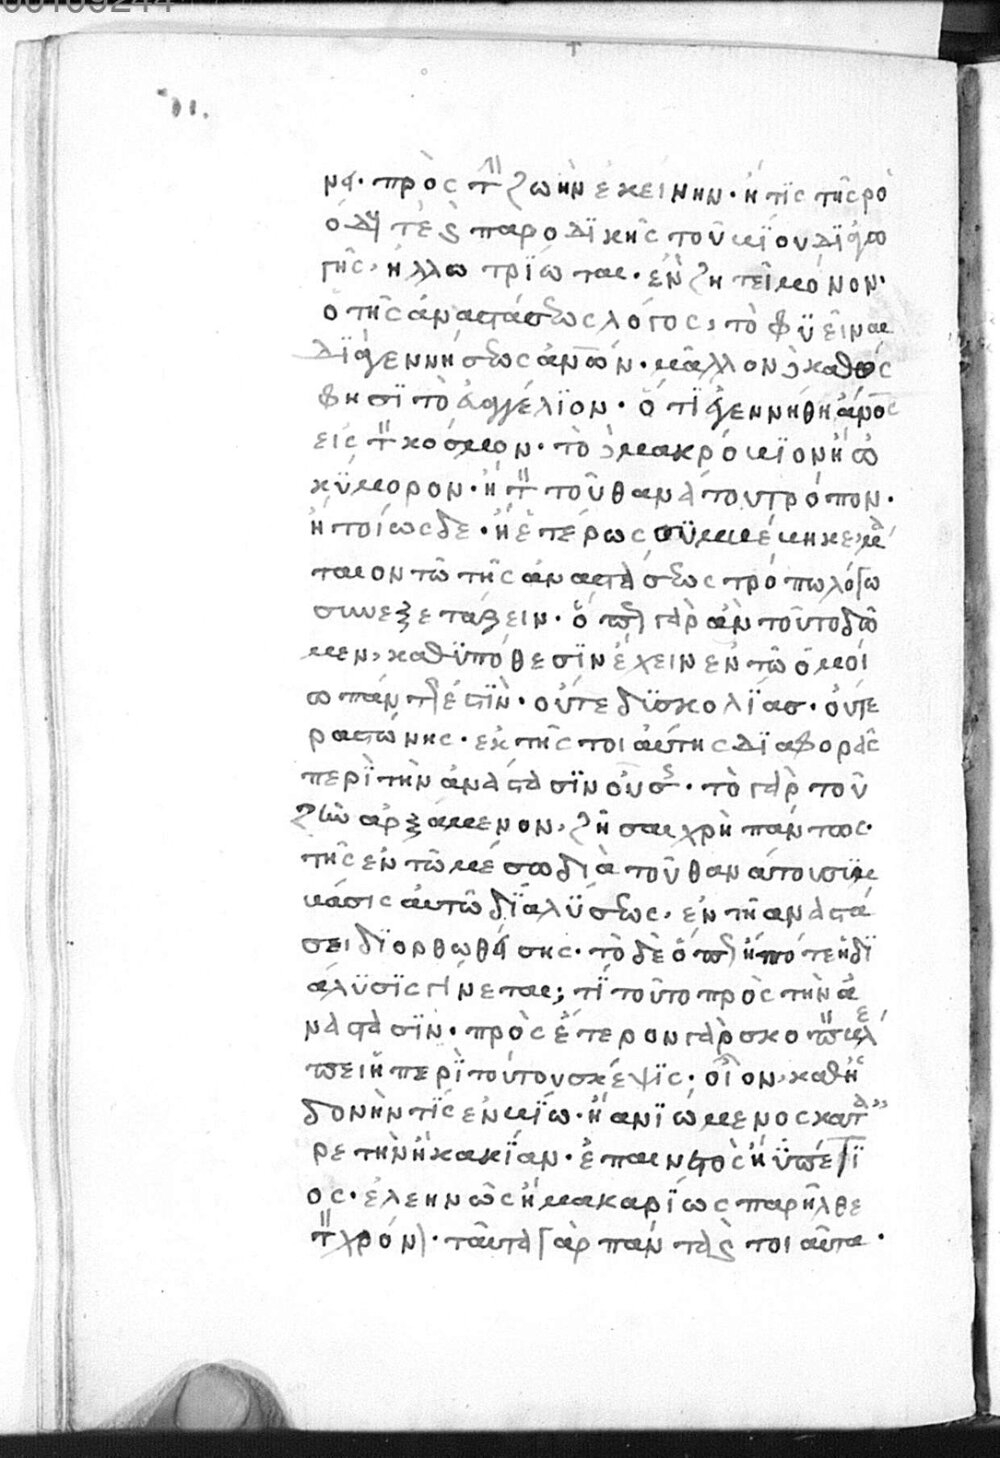 να· πρὸς τὴν ζωὴν ἐκείνην· ἥτις τῆς ῥο
ώδους τε καὶ παροδϊκῆς τοῦ βϊου δϊαγω
γῆς, ἠλλωτρϊωται· ἐνζητεῖ μόνον·
ὁ τῆς ἀναστάσεως λόγος, τὸ φϋεῖναι
δϊὰ γεννήσεως ἀνον· μᾶλλον δὲ καθὼς
φησϊ τὸ εὐαγγέλϊον· ὅτϊ ἐγεννήθη ἄνος
εἰς τὸν κόσμον· τὸ δὲ μακρόβϊον ἢ ὠ
κϋμορον· ἢ τὸν τοῦ θανάτου τρόπον·
ἢ τοίως δε· ἢ ἑτέρως συμβέβηκε, μά
ταιον τῶ τῆς ἀναστάσεως τρόπω λόγω
συνεξετάζειν· ὅπως γὰρ ἂν τοῦτο δῶ
μεν, καθ ϋπόθεσϊν ἔχειν ἐν τῶ ὁμοί
ω πάντως ἐστϊν· οὔτε δϋσκολϊασ· οὔτε
ραστώνης· ἐκ τῆς τοιαύτης δϊαφορᾶς
περὶ τὴν ἀνάστασϊν οὔσης· τὸ γὰρ τοῦ
ζῆν ἀρξάμενον, ζῆσαι χρὴ πάντως·
τῆς ἐν τῶ μέσω διὰ τοῦ θανάτου συμ
βάσης αὐτῶ δϊαλϋσεως, ἐν τῆ αναστά
σει δϊορθωθείσης· τὸ δὲ ὅπως ἢ πότε ἡ δϊ
άλϋσϊς γίνεται; τϊ τοῦτο πρὸς τὴν ἀ
νάστασϊν· πρὸς ἕτερον γὰρ σκοπὸν βλέ
πει ἡ περὶ τούτου σκέψϊς· οἷον, καθ ἡ
δονὴν τϊς ἐνβϊω· ἢ ἀνϊώμενος κατ ἀ
ρετὴν ἢ κακϊαν· ἐπαινετὸς ἢ ϋπαίτϊ
ος· ἐλεηνῶς ἢ μακαρϊως παρῆλθε
τὸν χρόνον· ταῦτα γὰρ πάντα καὶ τοιαῦτα·